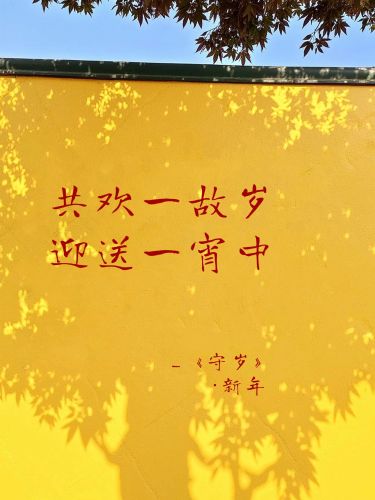 共欢一故岁
迎送一宵中
-《守岁》
·新年